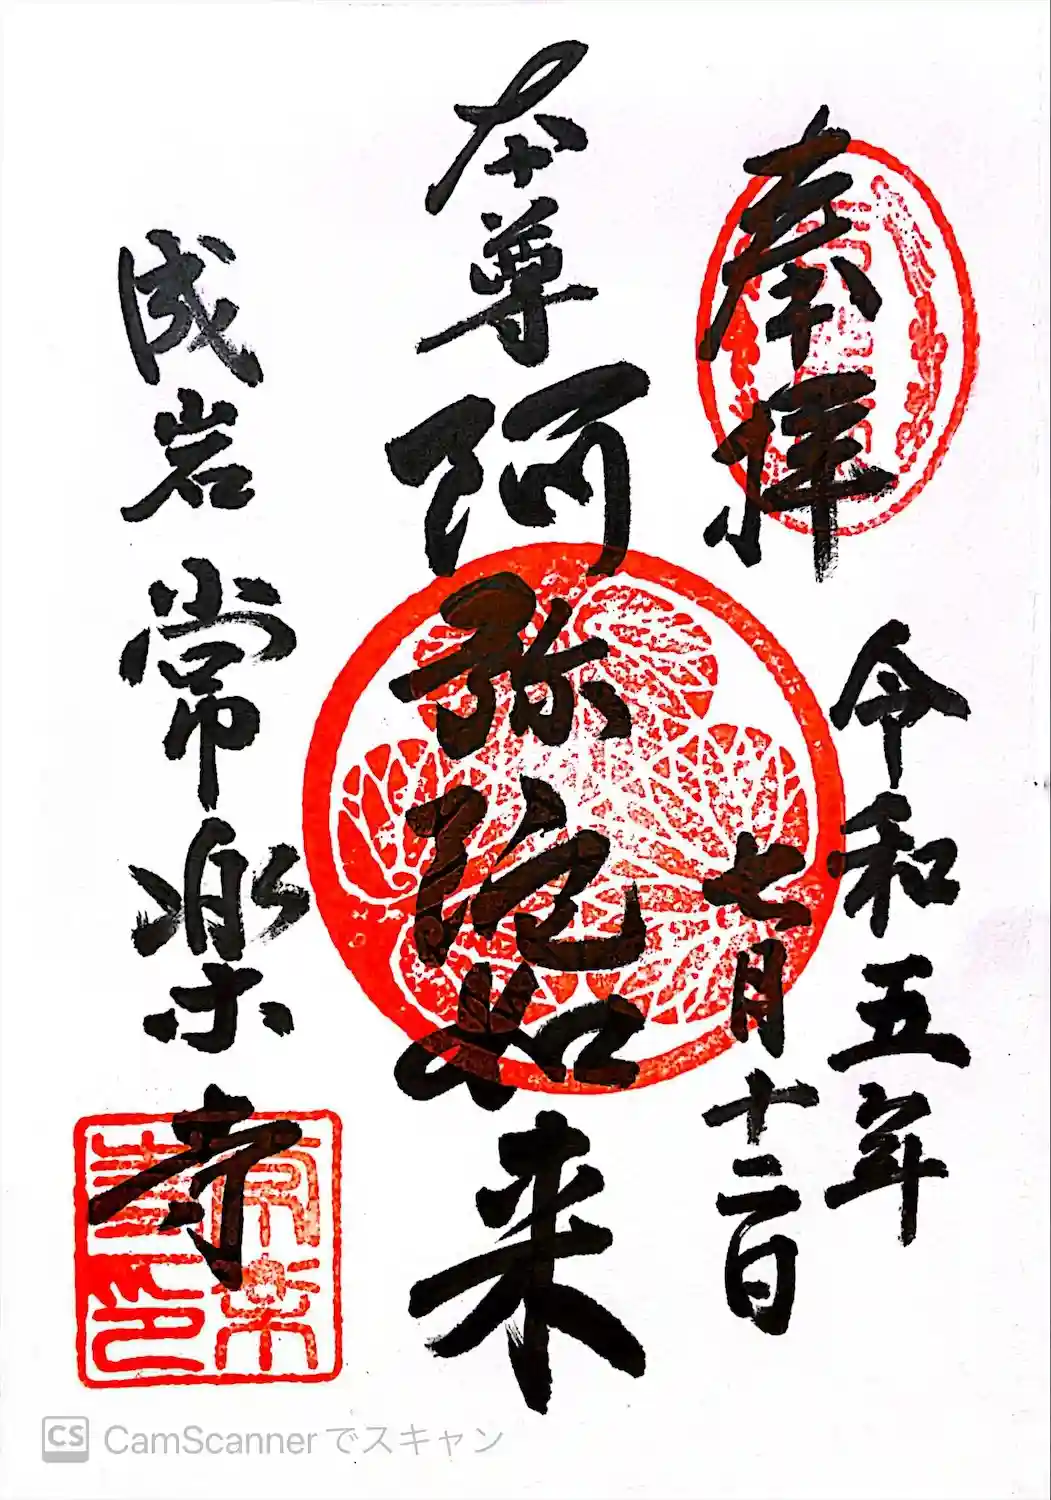 奉拝
令和五年
七月十二日
本尊阿弥陀如来
成岩常楽寺
常楽寺印
CS CamScannerでスキャン